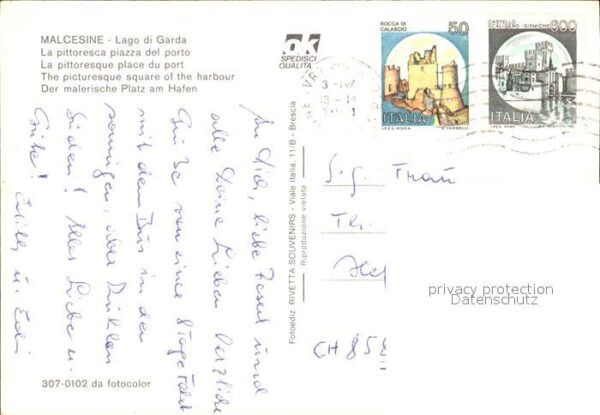 MALCESINE - Lago di Garda
La pittoresca piazza del porto
La pittoresque place du port
The picturesque square of the harbour
Der malerische Platz am Hafen
ok
SPEDISCI
QUALITÀ
ROCCA DI
CALASCIO
50
ITALIA
I.P.Z.S. ROMA
CASTELLO
SCALIGERO - SIRMIONE
600
ITALIA
I.P.Z.S. ROMA
An Dich, liebe und
alle Deine Lieben herzliche
Grüße von einer 8 Tage Fahrt
mit dem Bus in den
sonnigen, aber
Süden! Alles Liebe u.
Gute!
u. Edi
Fotoediz. RIVETTA SOUVENIRS - Viale Italia, 11/B - Brescia
Riproduzione vietata
Frau
CH 859
privacy protection
Datenschutz
307-0102 da fotocolor